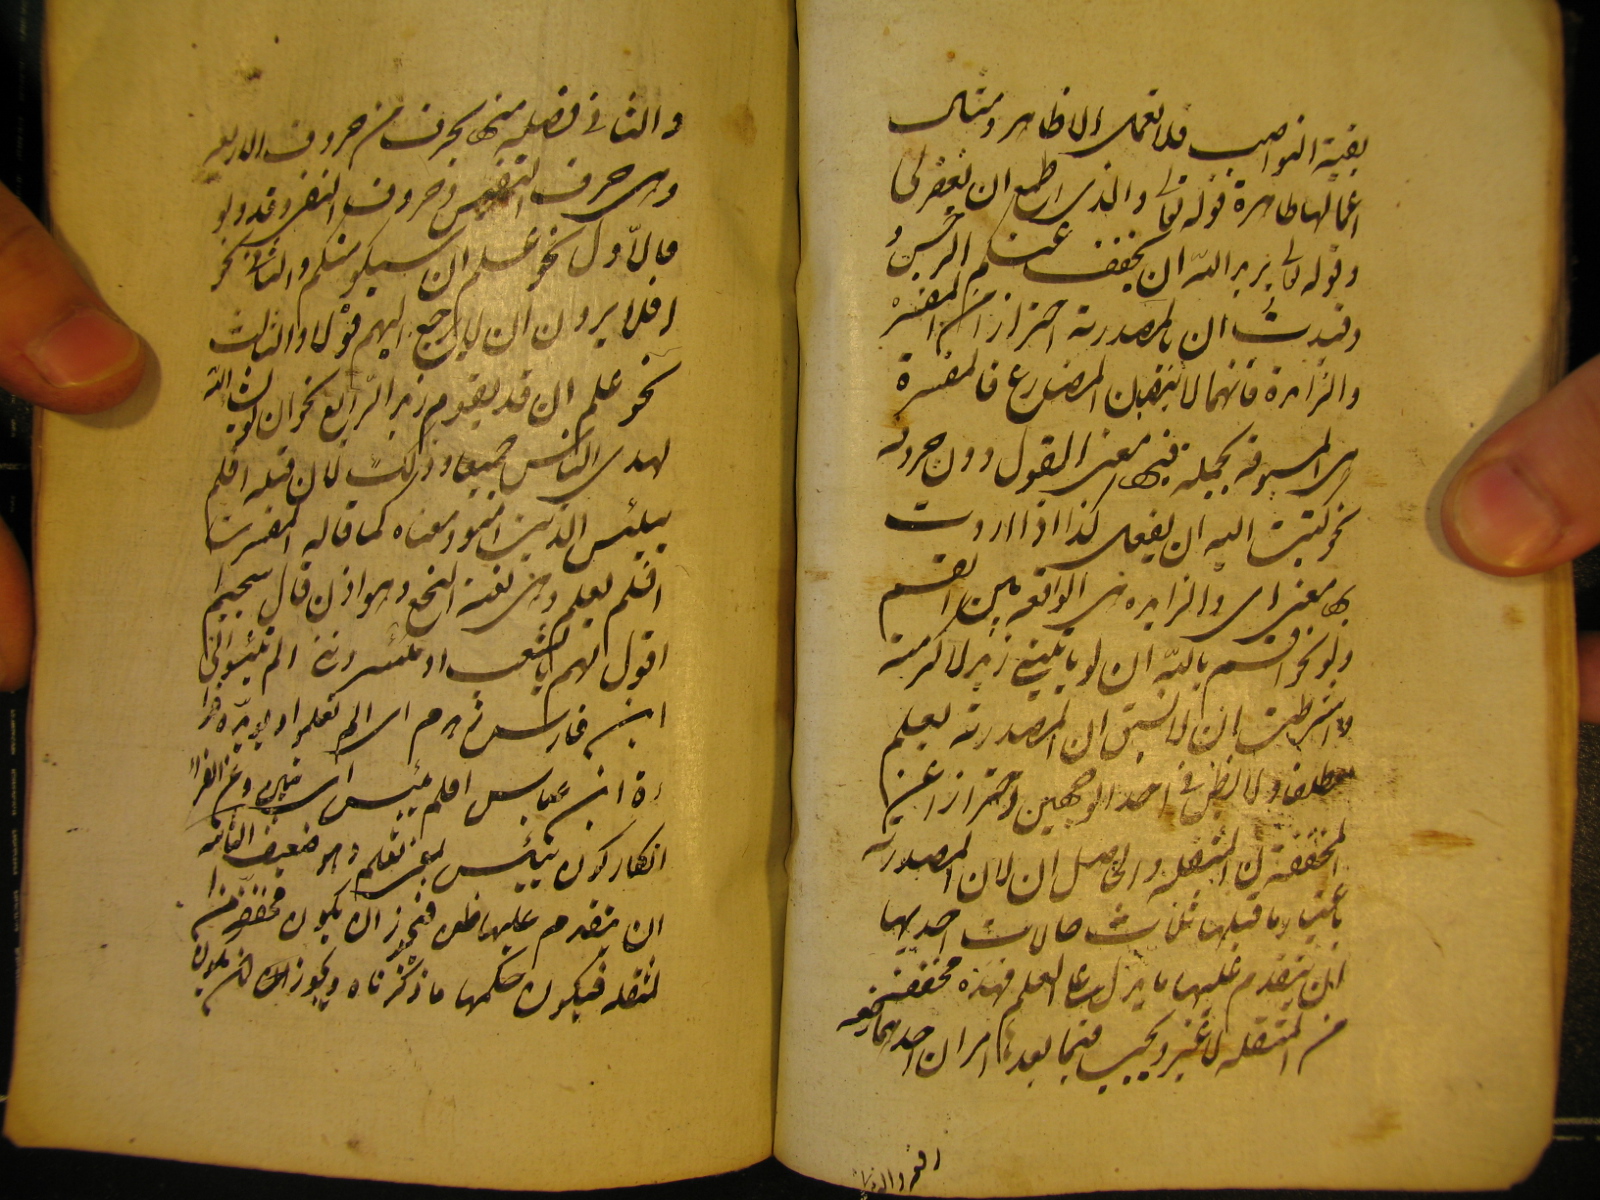 بقية النواصب فلا تعمل الا ظاهرة ومثال
اعمالها ظاهرة قوله تعالى والذى اطمع ان يغفر لى
وقوله تعالى يريد الله ان يخفف عنكم الرجس و
وقيدت ان بالمصدرية احترازا من المفسرة
والزائدة فانهما لا ينصبان المضارع فالمفسرة
هى المسبوقة بجملة فيها معنى القول دون حروفه
نحو كتبت اليه ان يفعل كذا اذا اردت
بها معنى اى والزايده هى الواقعة بين القسم
ولو نحو اقسم بالله ان لو ياتينى زيد لاكرمنه
واشترطت ان لا تسبق ان المصدرية بعلم
مطلقا ولا بظن فى احد الوجهين احترازا عن
المخففة من المثقلة والحاصل ان لان المصدرية
باعتبار ما قبلها ثلاث حالات احديها
ان يتقدم عليها ما يدل على العلم فهذه مخففة
من المثقلة لا غير ويجب فيما بعدها امران احدهما رفعه
والثانى فصله منها بحرف من حروف الاربعة
وهى حرف التنفيس وحروف النفى وقد ولو
فالاول نحو علم ان سيكون منكم والثانى نحو
افلا يرون ان لا يرجع اليهم قولا والثالث
نحو علم ان قد يقوم زيد الرابع نحو ان لو يشاء الله
لهدى الناس جميعا وذلك لان قبله افلم
ييئس الذين امنوا ومعناه كما قاله المفسرون
افلم يعلم وهى لغة النخع وهوازن قال سحيم
اقول لهم بالشعب اذ ييسروننى الم تيئسوا انى
ابن فارس زهدم اى الم تعلموا ويؤيده قرا
ءة ابن عباس افلم يتبين وعن الفراء
انكار كون ييئس بمعنى يعلم وهو ضعيف الثانية
ان يتقدم عليها ظن فيجوز ان يكون مخففة من ا
لمثقله فيكون حكمها ما ذكرناه ويجوز ان يكون